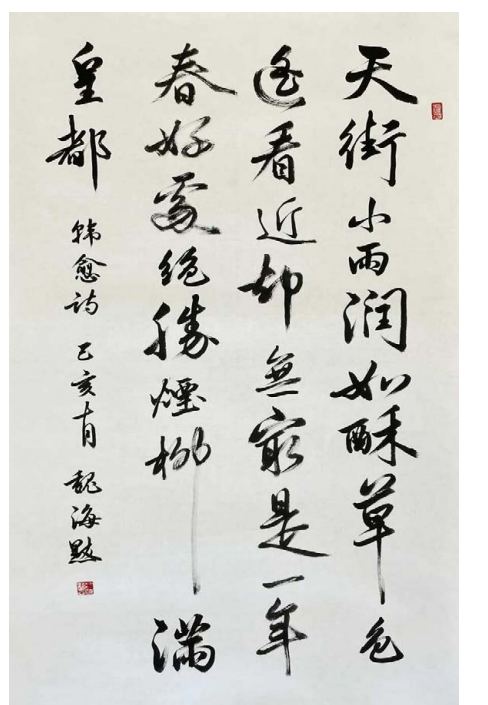 天街小雨润如酥草色
遥看近却無㝡是一年
春好處绝勝煙柳满
皇都
韩愈诗 己亥十月 魏海